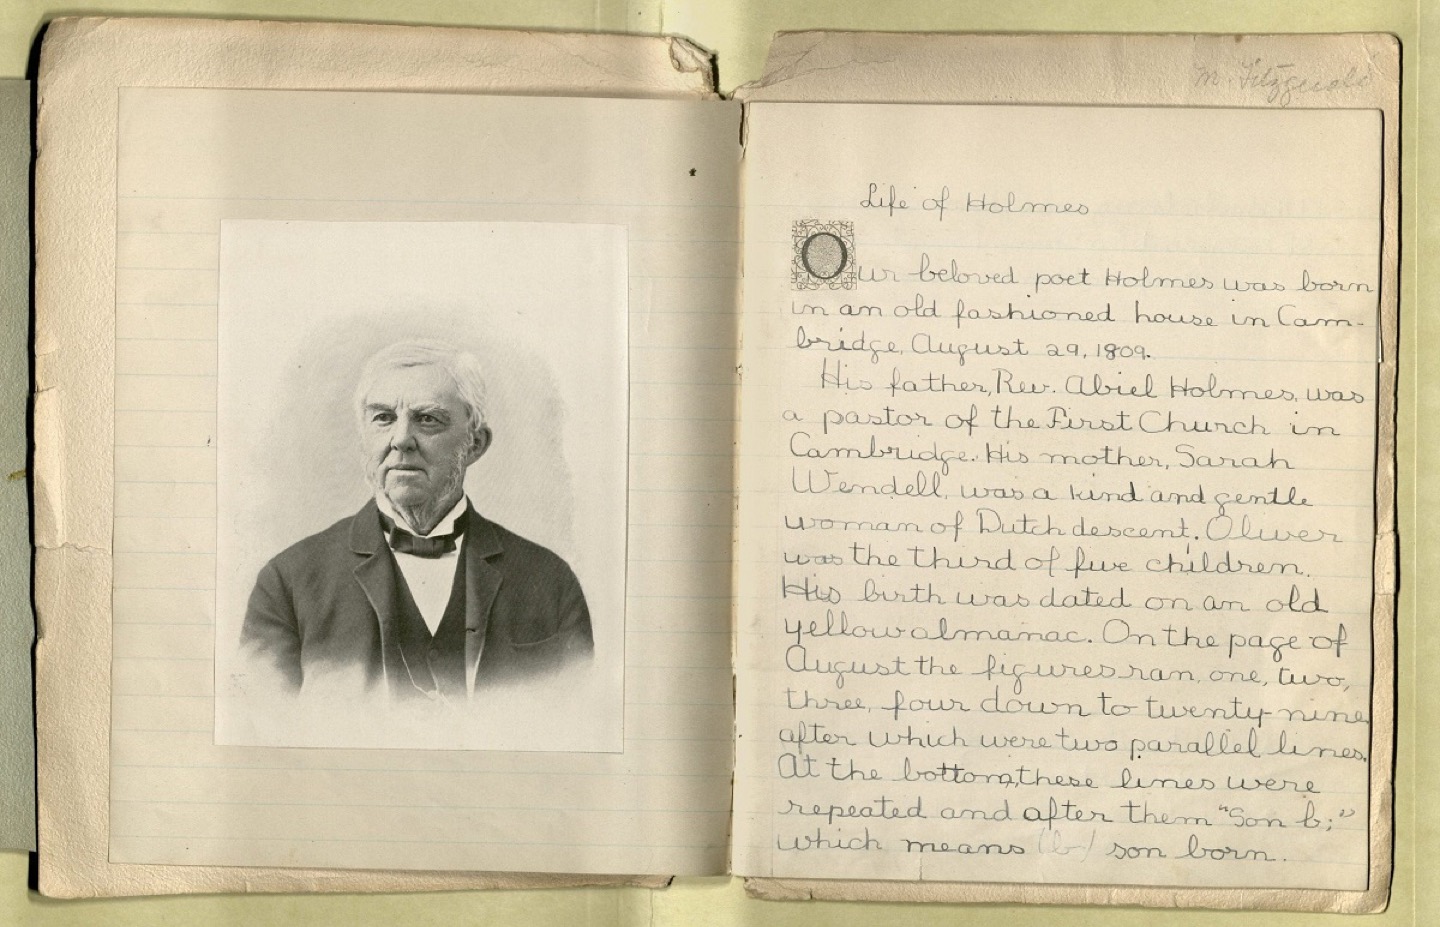 M. Fitzgerald
Life of Holmes
Our beloved poet Holmes was born
in an old fashioned house in Cam-
bridge, August 29, 1809.
His father, Rev. Abiel Holmes, was
a pastor of the First Church in
Cambridge. His mother, Sarah
Wendell, was a kind and gentle
woman of Dutch descent. Oliver
was the third of five children.
His birth was dated on an old
yellow almanac. On the page of
August the figures ran, one, two,
three, four down to twenty-nine
after which were two parallel lines.
At the bottom, these lines were
repeated and after them "Son b;"
which means (b) son born.